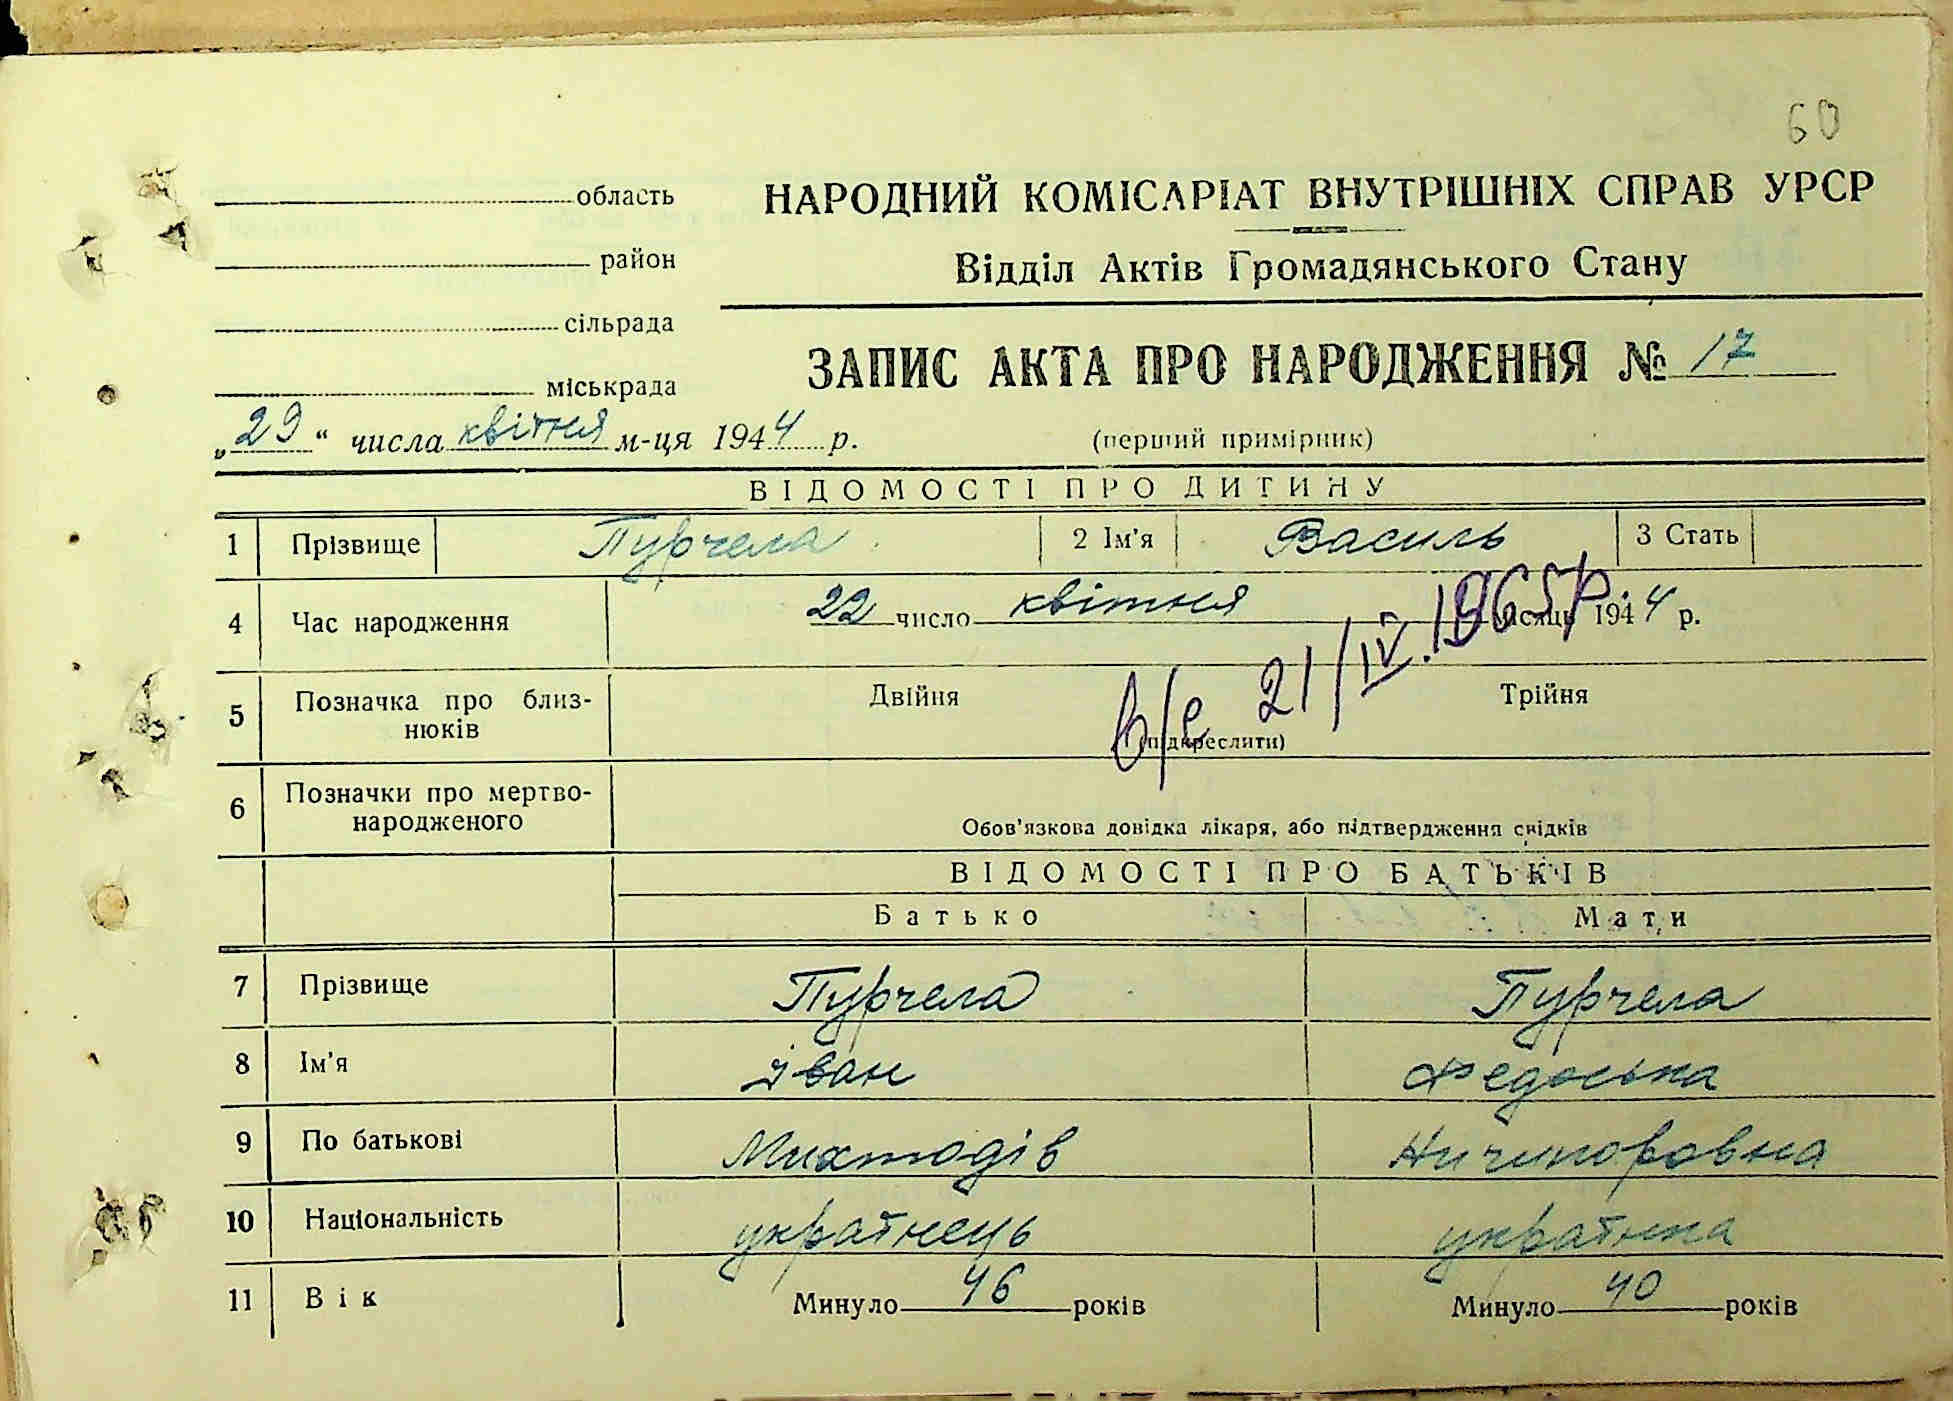 60
область
район
сільрада
міськрада
НАРОДНИЙ КОМІСАРІАТ ВНУТРІШНІХ СПРАВ УРСР
Відділ Актів Громадянського Стану
ЗАПИС АКТА ПРО НАРОДЖЕННЯ № 17
„29“ числа квітня м-ця 1944 р.
(перший примірник)
ВІДОМОСТІ ПРО ДИТИНУ
1 Прізвище Пурчела 2 Ім'я Василь 3 Стать
4 Час народження 22 число квітня місяць 1944 р.
в/е 21/IV.1965р.
5 Позначка про близ-
нюків
Двійня Трійня
(підкреслити)
6 Позначки про мертво-
народженого
Обов'язкова довідка лікаря, або підтвердження свідків
ВІДОМОСТІ ПРО БАТЬКІВ
Батько Мати
7 Прізвище Пурчела Пурчела
8 Ім'я Іван Федоська
9 По батькові Ничипоровна
10 Національність українець українка
11 Вік Минуло 46 років Минуло 40 років